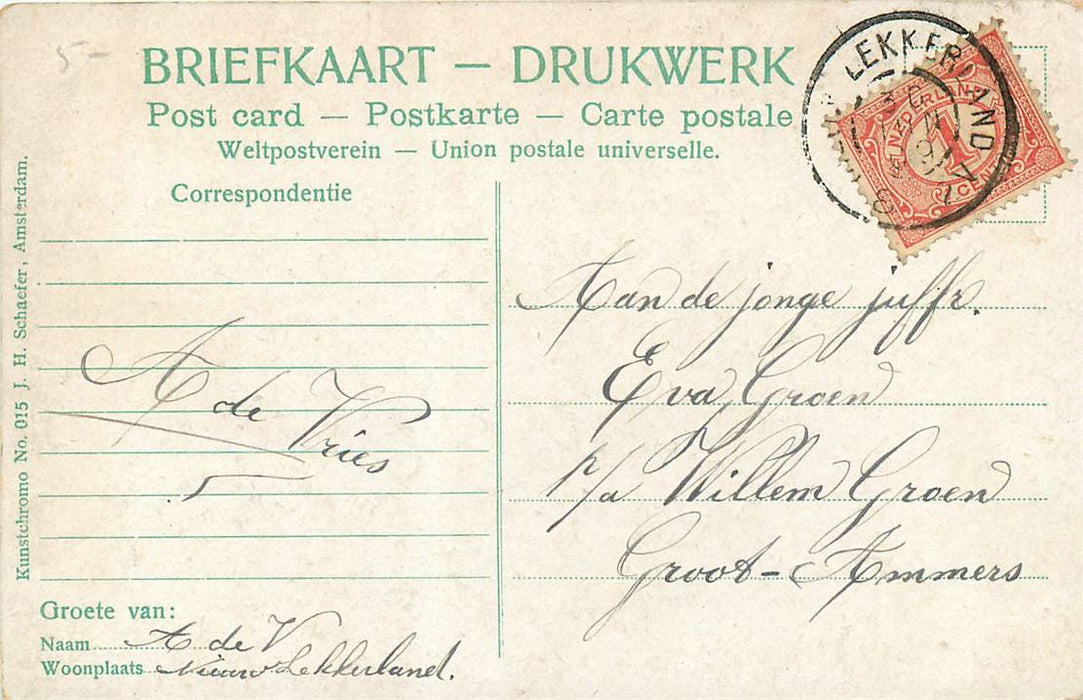 5-
BRIEFKAART — DRUKWERK
Post card — Postkarte — Carte postale
Weltpostverein — Union postale universelle.
Correspondentie
A de Vries
Groete van:
Naam A de V
Woonplaats Nieuw Lekkerland.
Kunstchromo No. 015 J. H. Schaefer, Amsterdam.
LEKKERLAND
1
CENT
Aan de jonge juffr.
Eva Groen
p/a Willem Groen
Groot-Ammers